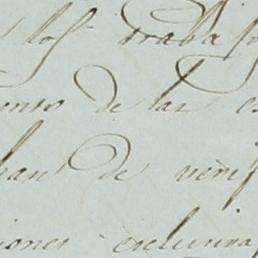 los trabajo
ento de las e
han de verif
iones esclusiva